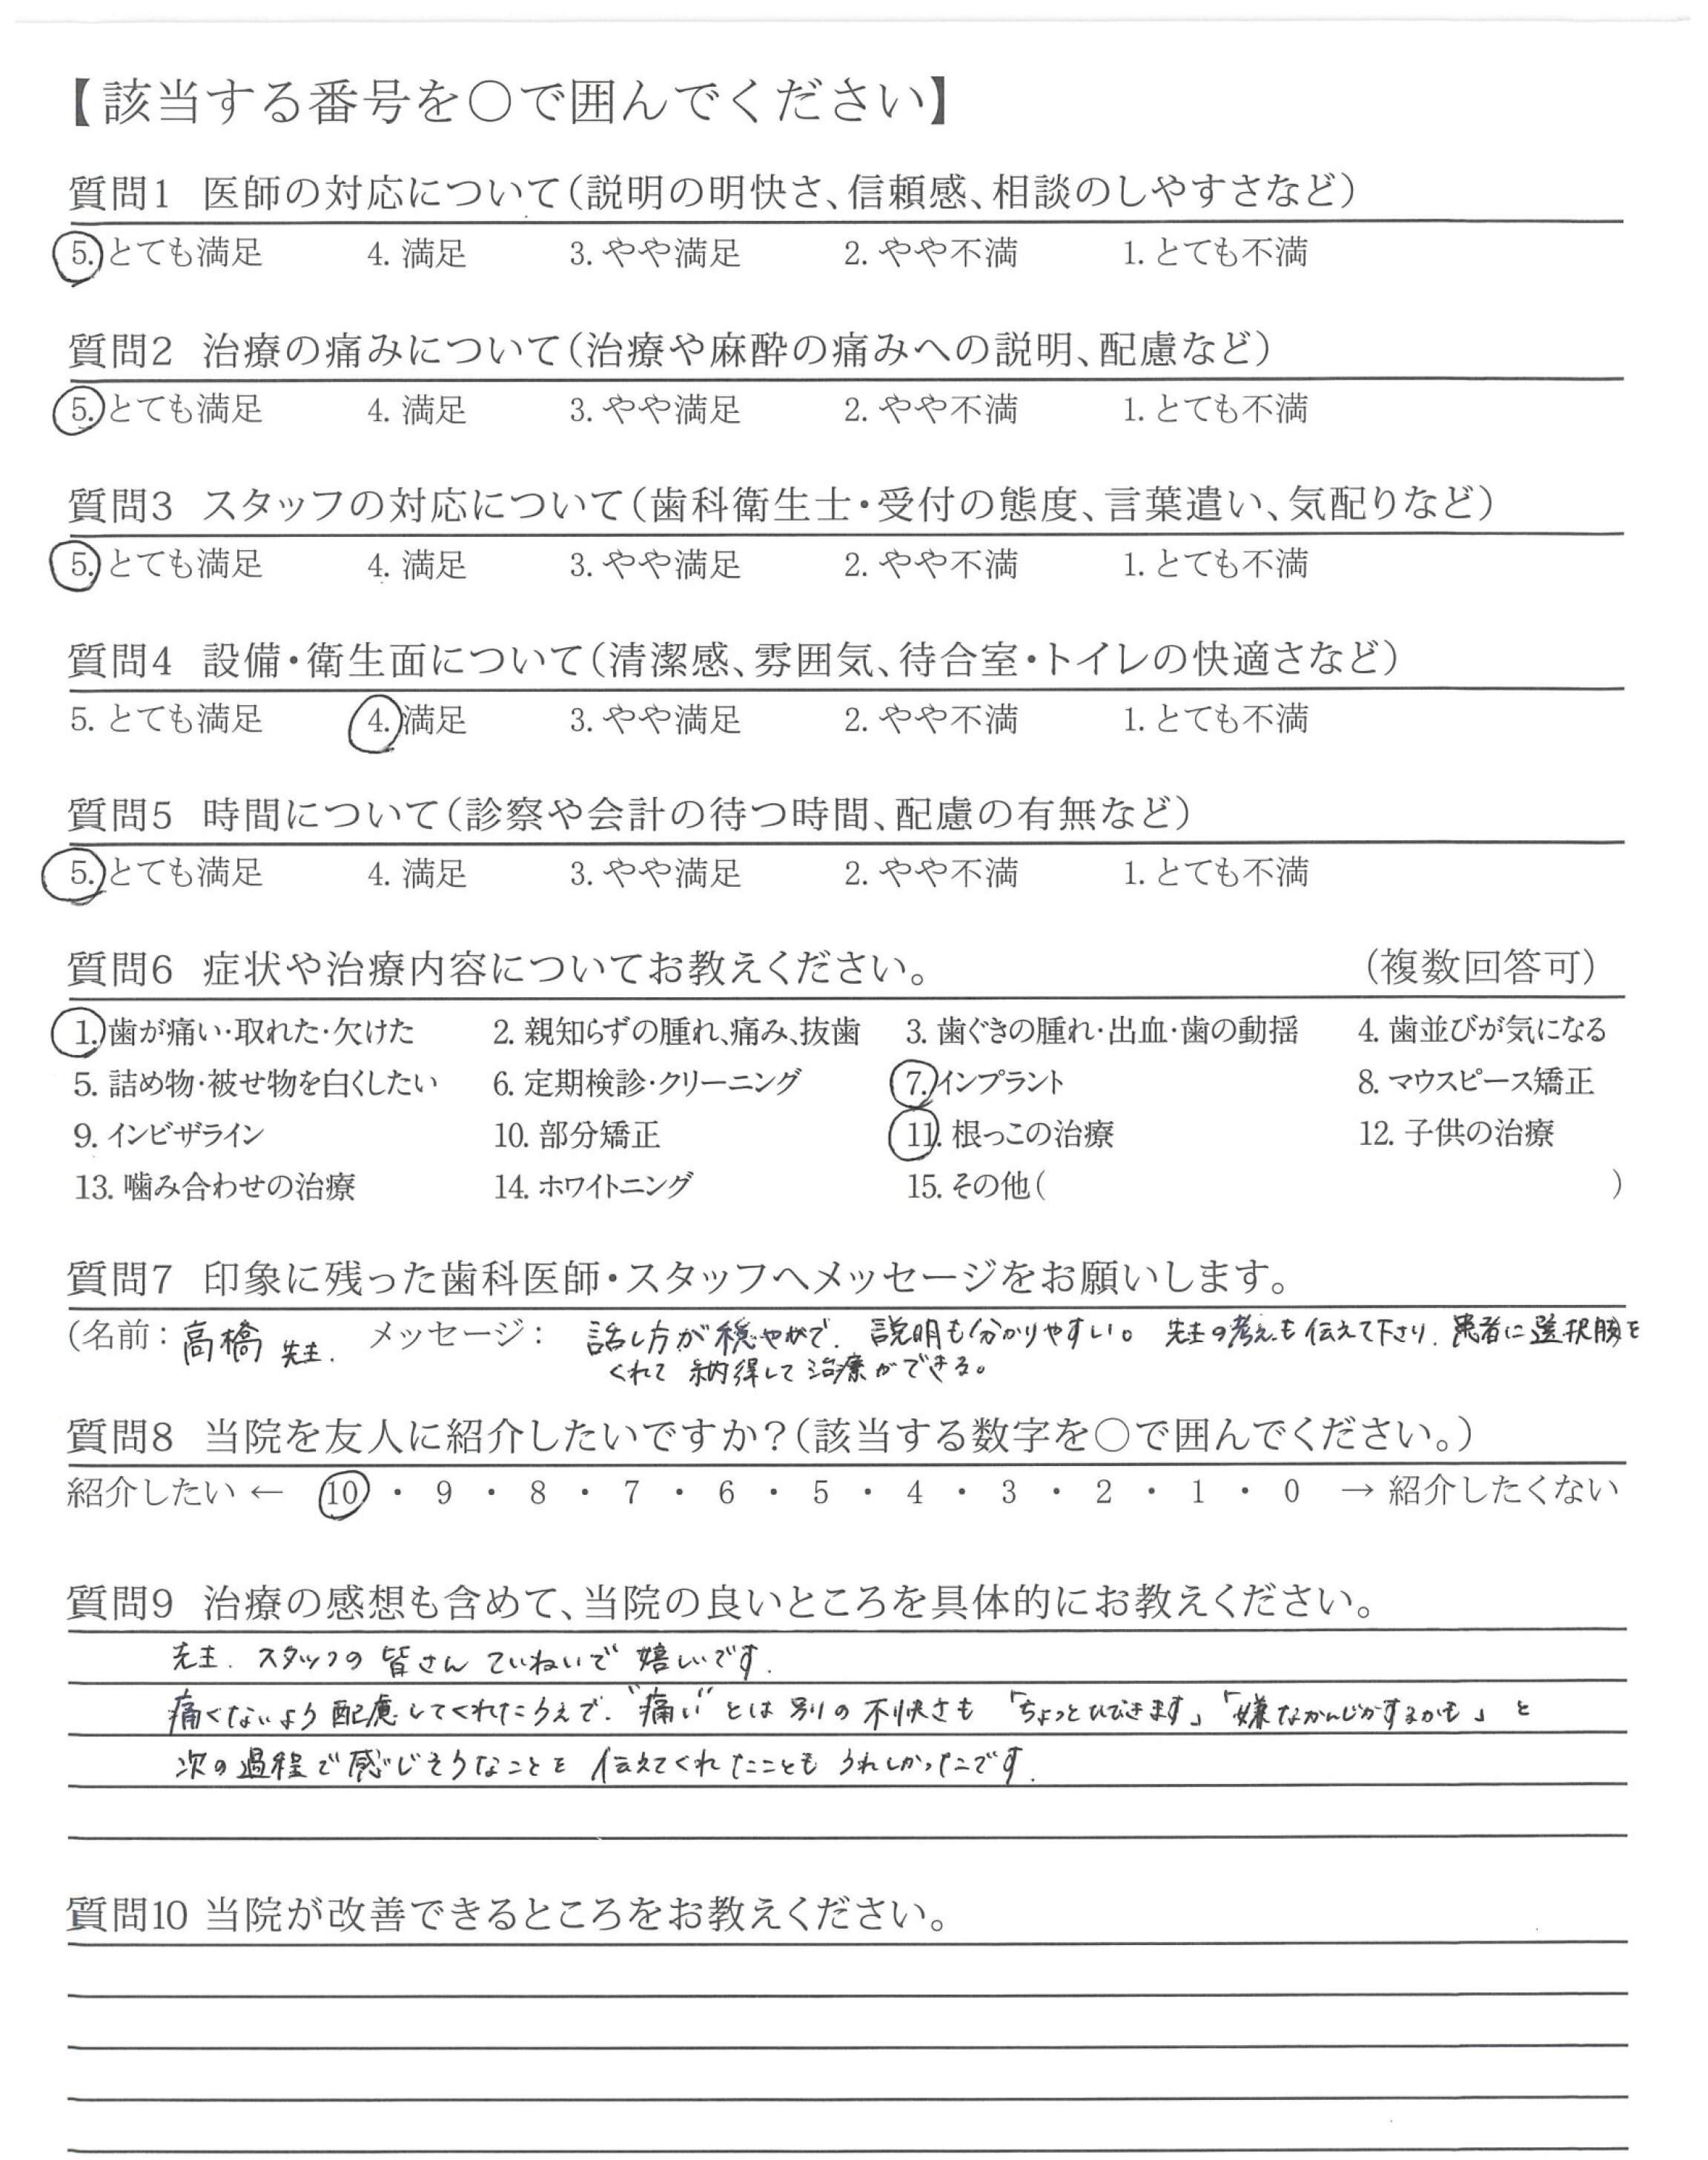 【該当する番号を〇で囲んでください】
質問1 医師の対応について(説明の明快さ、信頼感、相談のしやすさなど)
5. とても満足 4. 満足 3. やや満足 2. やや不満 1. とても不満
質問2 治療の痛みについて(治療や麻酔の痛みへの説明、配慮など)
5. とても満足 4. 満足 3. やや満足 2. やや不満 1. とても不満
質問3 スタッフの対応について(歯科衛生士・受付の態度、言葉遣い、気配りなど)
5. とても満足 4. 満足 3. やや満足 2. やや不満 1. とても不満
質問4 設備・衛生面について(清潔感、雰囲気、待合室・トイレの快適さなど)
5. とても満足 4. 満足 3. やや満足 2. やや不満 1. とても不満
質問5 時間について(診察や会計の待つ時間、配慮の有無など)
5. とても満足 4. 満足 3. やや満足 2. やや不満 1. とても不満
質問6 症状や治療内容についてお教えください。 (複数回答可)
1. 歯が痛い・取れた・欠けた 2. 親知らずの腫れ、痛み、抜歯 3. 歯ぐきの腫れ・出血・歯の動揺 4. 歯並びが気になる
5. 詰め物・被せ物を白くしたい 6. 定期検診・クリーニング 7. インプラント 8. マウスピース矯正
9. インビザライン 10. 部分矯正 11. 根っこの治療 12. 子供の治療
13. 噛み合わせの治療 14. ホワイトニング 15. その他( )
質問7 印象に残った歯科医師・スタッフへメッセージをお願いします。
(名前: 高橋 先生. メッセージ: 話し方が穏やかで、説明も分かりやすい。先生の考えも伝えて下さり、患者に選択肢を
くれて 納得して治療ができる。
質問8 当院を友人に紹介したいですか?(該当する数字を〇で囲んでください。)
紹介したい ← 10 ・ 9 ・ 8 ・ 7 ・ 6 ・ 5 ・ 4 ・ 3 ・ 2 ・ 1 ・ 0 → 紹介したくない
質問9 治療の感想も含めて、当院の良いところを具体的にお教えください。
先生、スタッフの皆さん ていねいで 嬉しいです.
痛くないよう配慮してくれたうえで、"痛い"とは別の不快さも「ちょっとひびきます」「嫌なかんじがするかも」と
次の過程で感じそうなことを伝えてくれたこともうれしかったです.
質問10 当院が改善できるところをお教えください。